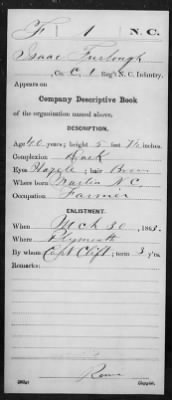 F 1 N.C.
Isaac Furlough
, Co. C, 1 Reg't N. C. Infantry.
Appears on
Company Descriptive Book
of the organization named above.
DESCRIPTION.
Age 40 years; height 5 feet 7½ inches.
Complexion Dark
Eyes Hazle; hair Brown
Where born Martin N.C.
Occupation Farmer
ENLISTMENT.
When Mch 30, 1863.
Where Plymouth
By whom Capt Clift; term 3 y'rs.
Remarks:
Copyist.